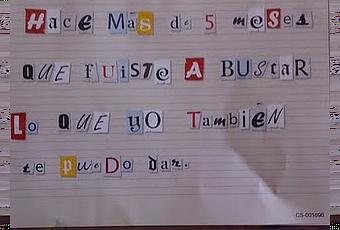 Hace Más de 5 meses
QUE fUiSTe A BUScaR
Lo QUE yO TambiÉN
te pueDo Dar.
CS-001696